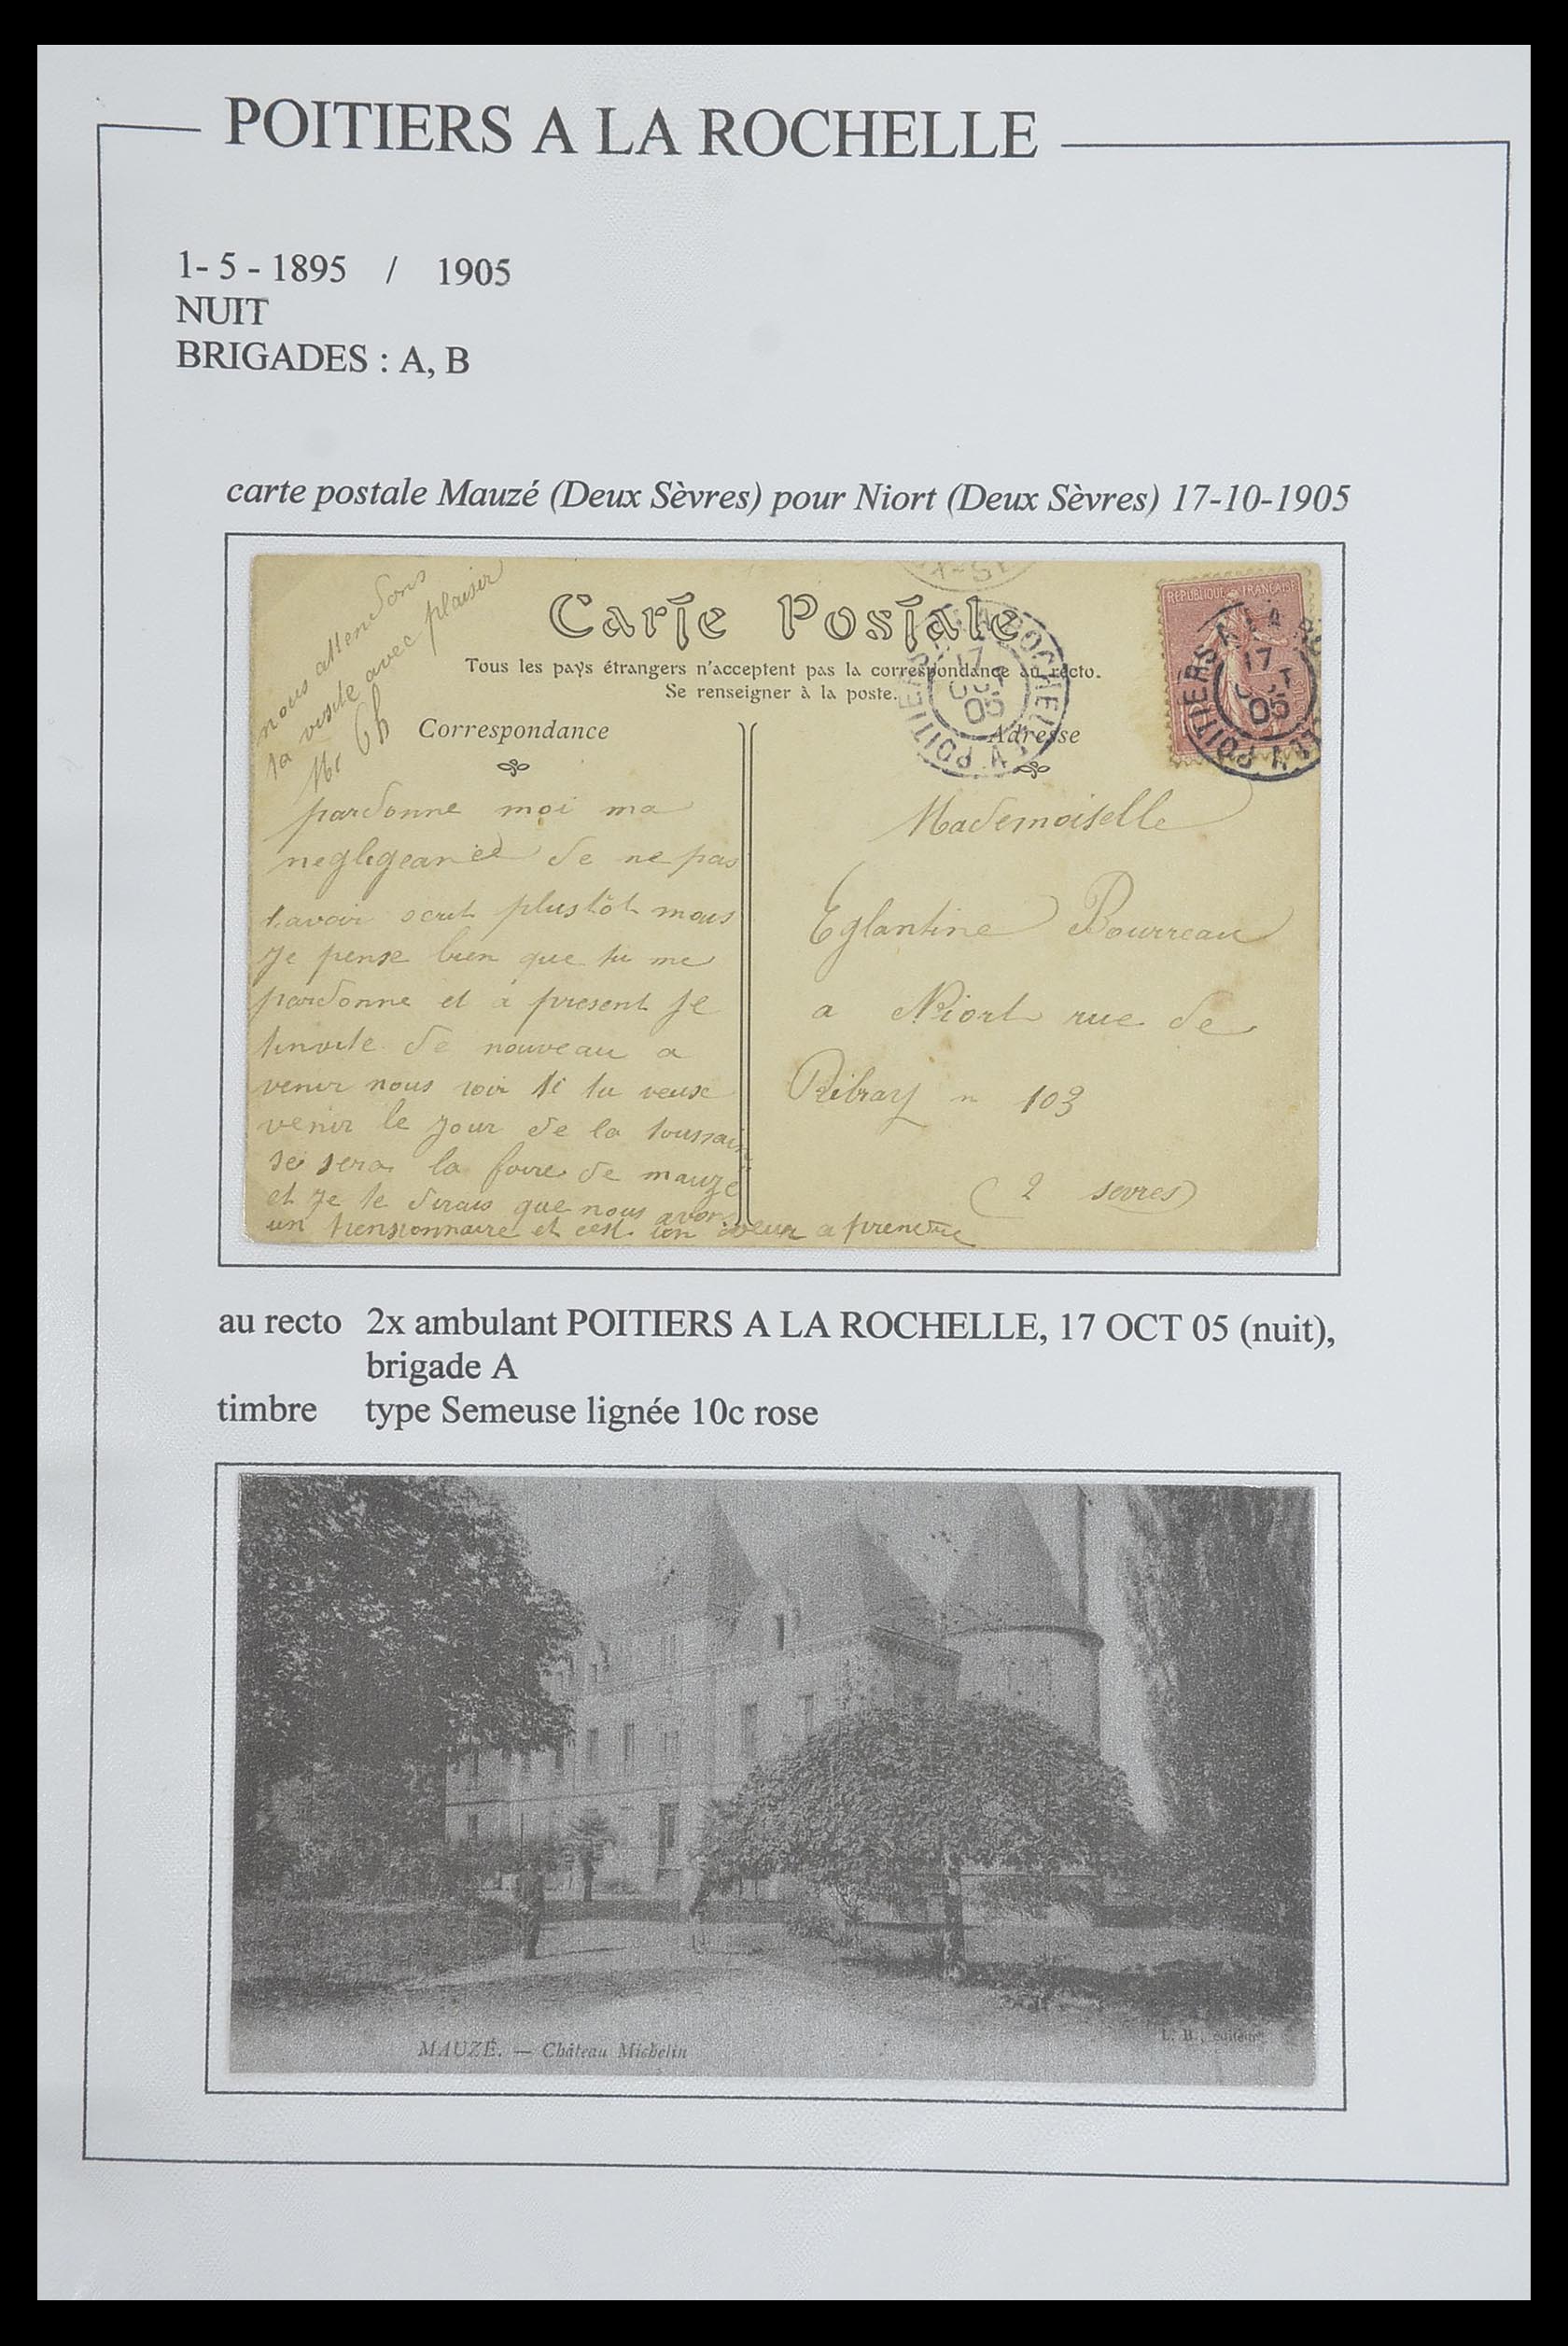 POITIERS A LA ROCHELLE
1- 5 - 1895 / 1905
NUIT
BRIGADES : A, B
carte postale Mauzé (Deux Sèvres) pour Niort (Deux Sèvres) 17-10-1905
nous attendons
ta visite avec plaisir
Carte Postale
Tous les pays étrangers n'acceptent pas la correspondance au recto.
Se renseigner à la poste.
Correspondance
Adresse
REPUBLIQUE FRANÇAISE
POITIERS A LA ROCHELLE
17
OCT
05
POITIERS A LA
17
05
pardonne moi ma
negligeance de ne pas
tavoir scrit plustôt mais
Je pense bien que tu me
pardonne et a present Je
tinvite de nouveau a
venir nous voir si tu veux
venir le jour de la toussaint
se sera la foire de mauzé
et Je te dirais que nous avons
un pensionnaire et cest un a prendre
Mademoiselle
Eglantine Bourreau
a Niort rue de
Ribray n 103
( 2 sevres)
au recto 2x ambulant POITIERS A LA ROCHELLE, 17 OCT 05 (nuit),
brigade A
timbre type Semeuse lignée 10c rose
MAUZÉ. — Château Michelin
L. B., éditeur